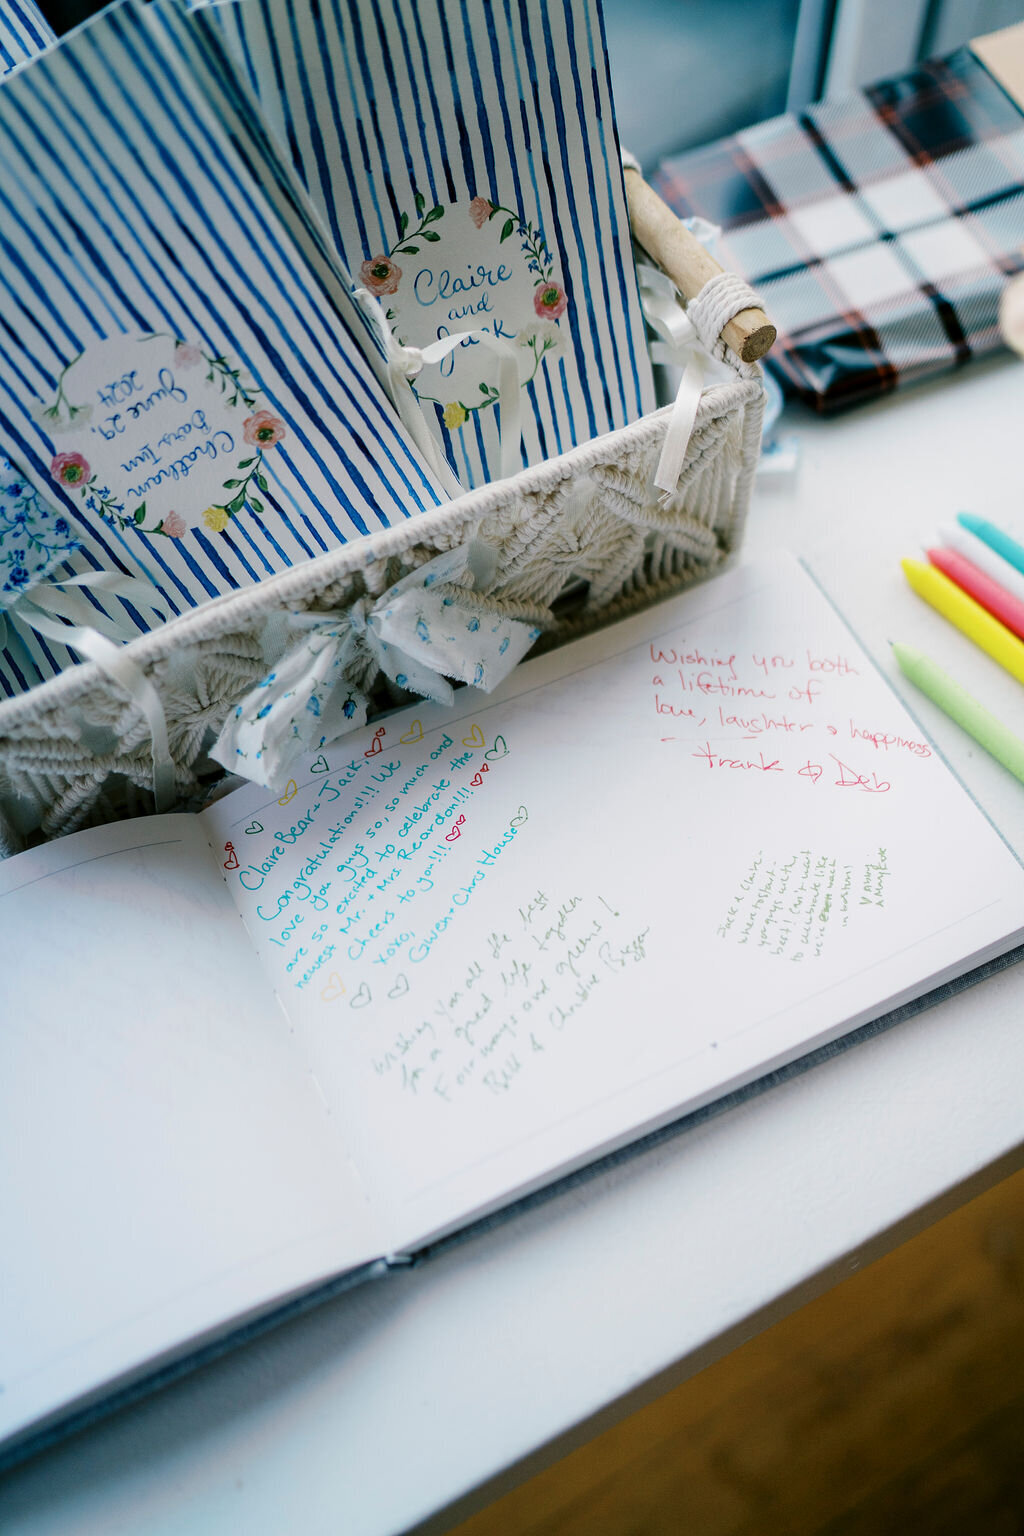 Claire
and
Jack
Chatham
Bars Inn
June 29,
2024
Claire Bear + Jack,
Congratulations!!!! We
love you guys so, so much and
are so excited to celebrate the
newest Mr. + Mrs. Reardon!!!
Cheers to you!!!!
xoxo,
Gwen + Chris House
Wishing you both
a lifetime of
love, laughter & happiness
Frank & Deb
Wishing you all the best
in a great life together
Fairways and greens!
Bill & Christine
Jack & Claire -
where to start.
you guys with
best! Can't wait
to celebrate like
we're back
in boston!